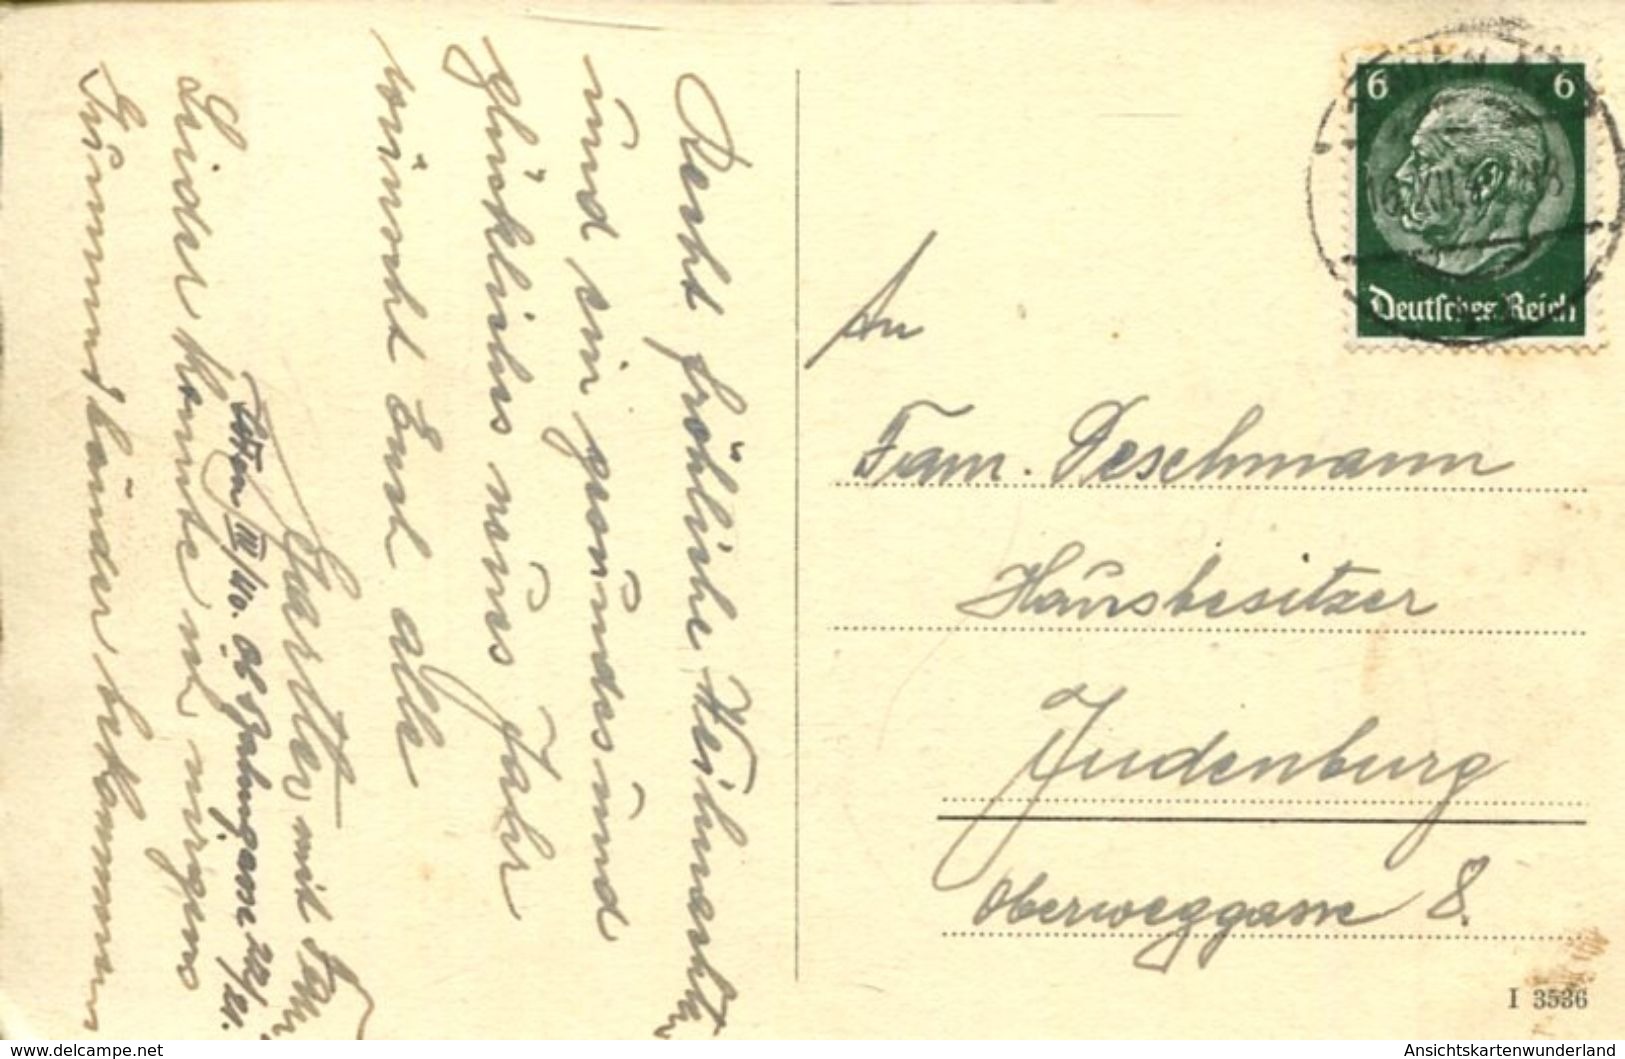 Recht fröhliche Weihnachten
und ein gesundes und
glückliches neues Jahr
wünscht Euch alle
Gartler mit
Leider konnte ich nirgens
bekommen
6 6
Deutsches Reich
An
Fam. Deschmann
Hausbesitzer
Judenburg
Oberweggasse 8.
I 3536
www.delcampe.net
Ansichtskartenwunderland